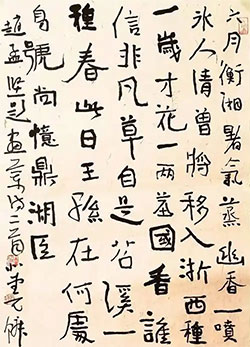 六月衡湘暑氣蒸幽香一噴
冰人清曾將移入浙西種
一歲才花一兩莖國香誰
信非凡草自是苕溪一
種春此日王孫在何處
烏號尚憶鼎湖臣
趙孟堅題畫蘭詩二首